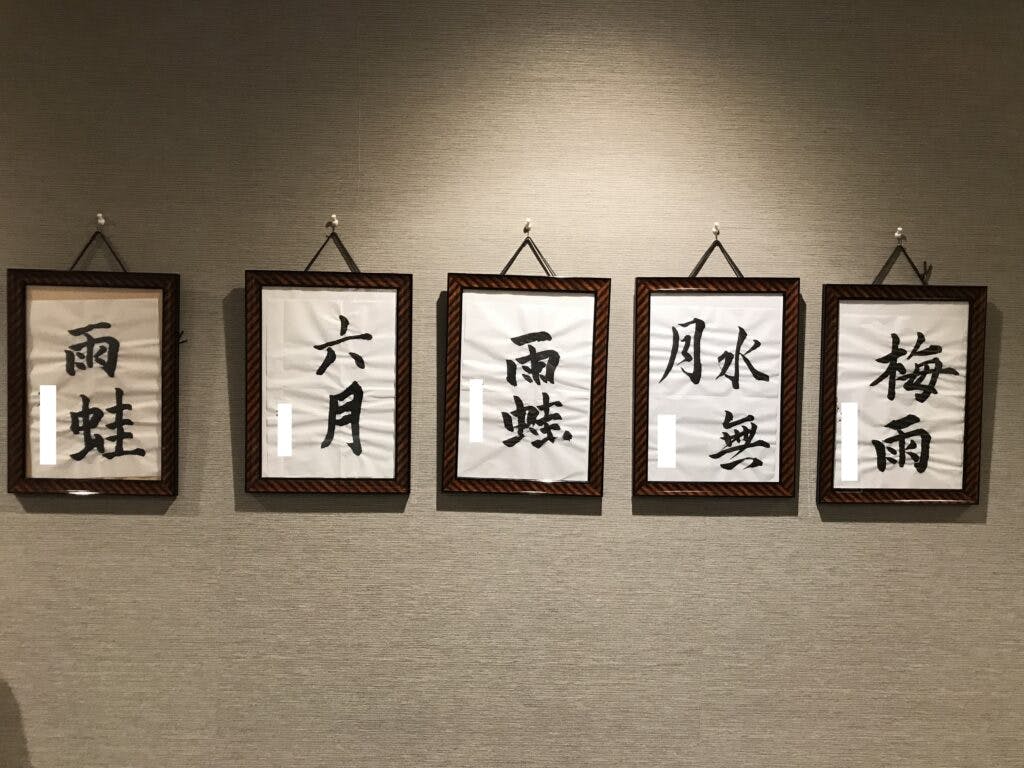 雨蛙
六月
雨蛙
水無
月
梅雨